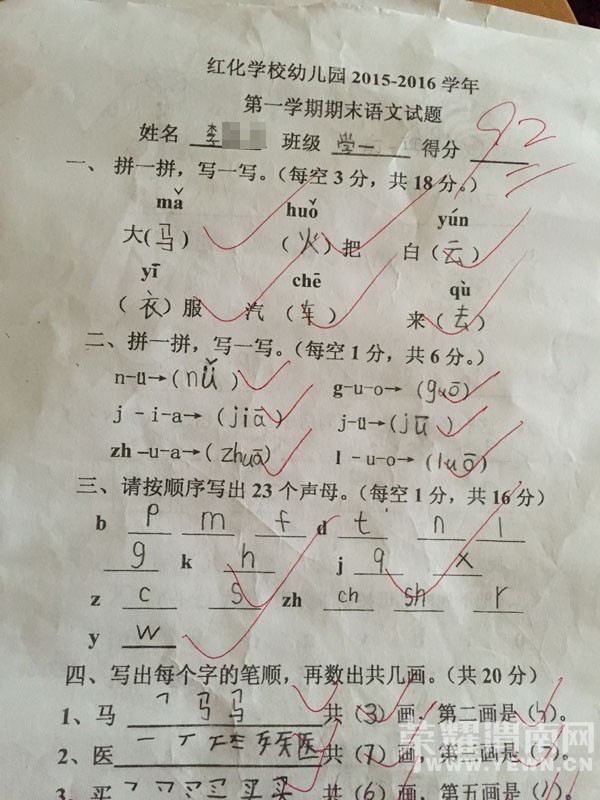 红化学校幼儿园 2015-2016 学年
第一学期期末语文试题
92
姓名 李 班级 学一 得分
一、拼一拼，写一写。（每空3分，共18分。）
mǎ huǒ yún
大(马) (火)把 白(云)
yī chē qù
(衣)服 汽(车) 来(去)
二、拼一拼，写一写。（每空1分，共6分。）
n-ü→(nǚ) g-u-o→(guō)
j-i-a→(jiā) j-ü→(jū)
zh-u-a→(zhuā) l-u-o→(luō)
三、请按顺序写出23个声母。（每空1分，共16分）
b p m f d t n l
g k h j q x
z c s zh ch sh r
y w
四、写出每个字的笔顺，再数出共几画。（共20分）
1、马 共(3)画，第二画是( )。
2、医 共(7)画，第三画是( )。
3、买 共(6)画，第五画是( )。
荣耀渭南网
WWW.YEWN.CN